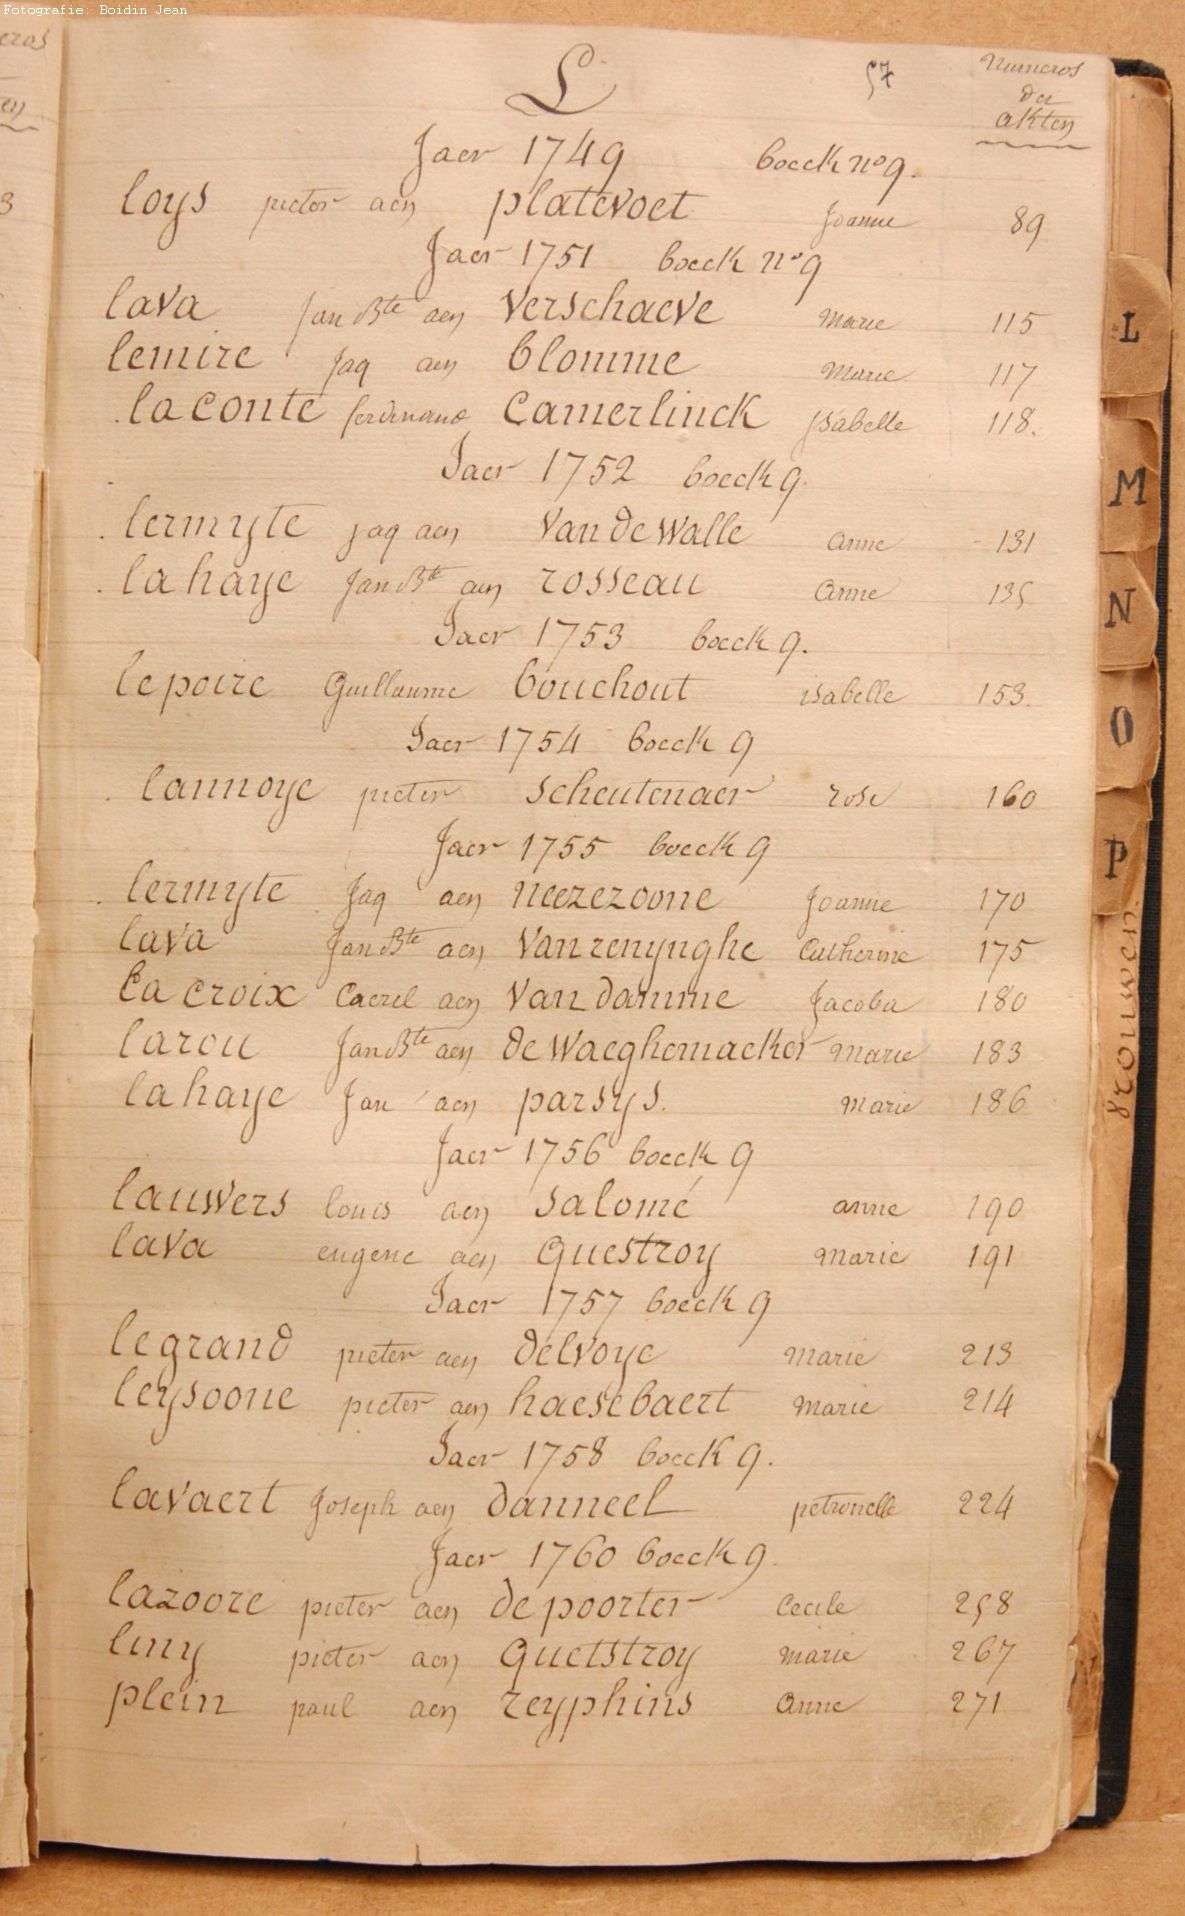 Fotografie: Boidin Jean
L 57 Numeros
der
akten
Jaer 1749 boeck n° 9.
loys pieter aen platevoet Joanne 89
Jaer 1751 boeck n° 9
lava Jan Bte aen verschaeve marie 115
lemire Jaq aen blomme marie 117
laconte ferdinand Camerlinck Isabelle 118.
Jaer 1752 boeck 9.
lermyte jaq aen van de walle anne 131
lahaye Jan Bte aen rosseau Anne 135
Jaer 1753 boeck 9.
lepoire Guillaume bouchout isabelle 153.
Jaer 1754 boeck 9
lannoye pieter scheutenaer rose 160
Jaer 1755 boeck 9
lermyte Jaq aen neezezoone Joanne 170
lava Jan Bte aen van renynghe Catherine 175
la croix Caerel aen van damme Jacoba 180
larou Jan Bte aen de waeghemaeker marie 183
lahaye Jan aen parsys. marie 186
Jaer 1756 boeck 9
lauwers louis aen salomé anne 190
lava eugene aen questroy marie 191
Jaer 1757 boeck 9
legrand pieter aen delvoye marie 213
leysoone pieter aen haesebaert marie 214
Jaer 1758 boeck 9.
lavaert Joseph aen danneel petronelle 224
Jaer 1760 boeck 9.
lazoore pieter aen de poorter cecile 258
liny pieter aen quetstroy marie 267
plein paul aen reyphins Anne 271
L
M
N
O
P
vrouwen